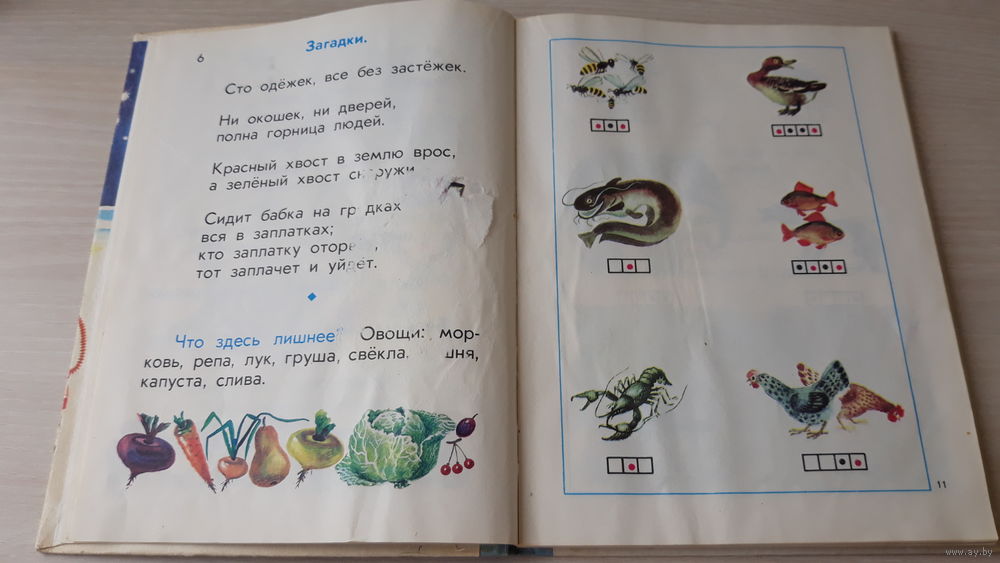 6
Загадки.
Сто одёжек, все без застёжек.
Ни окошек, ни дверей,
полна горница людей.
Красный хвост в землю врос,
а зелёный хвост
Сидит бабка на
вся в заплатках;
кто заплатку
тот заплачет и уйдёт.
Что здесь лишнее? Овощи: мор-
ковь, репа, лук, груша, свёкла,
капуста, слива.
11
www.ay.by